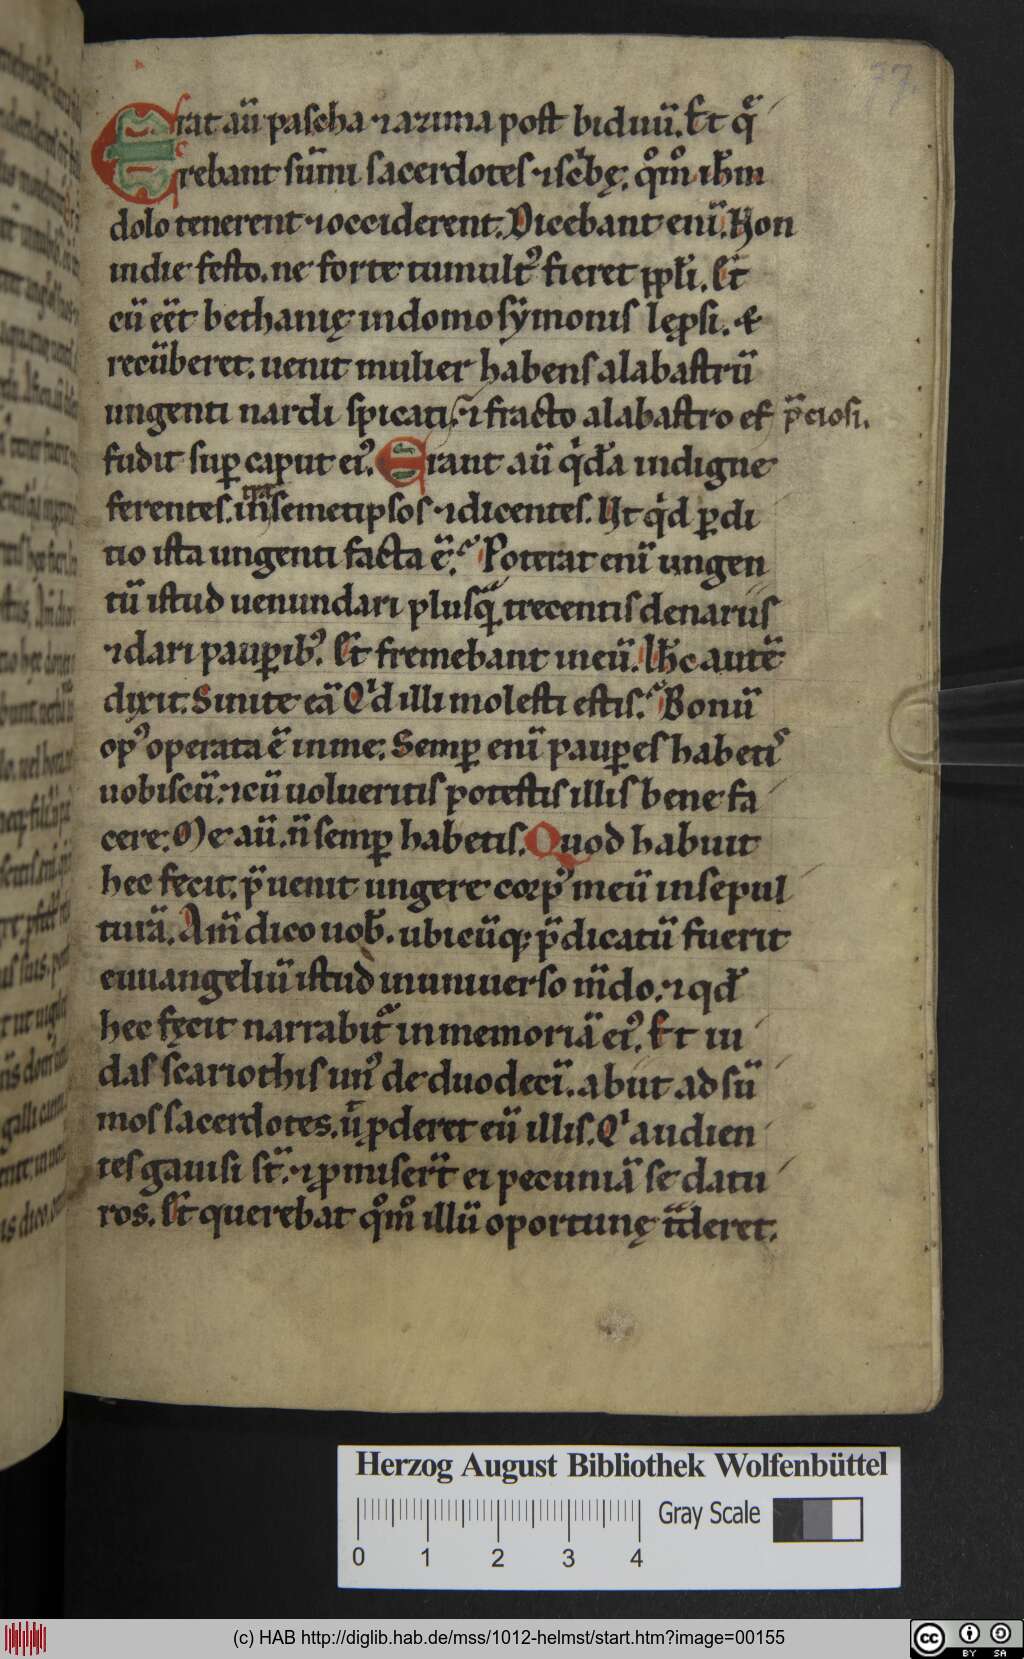 77.
Erat aū pascha ⁊ azima post biduū. Et q̄
rebant sūmi sacerdotes ⁊ scͥbę. qͦmͦ ihm̄
dolo tenerent ⁊ occiderent. Dicebant enī. Non
indie festo. ne forte tumultꝰ fieret ppl̄i. Et
cū eēt bethanię indomo sẏmonis lęprsi. &
recūberet. uenit mulier habens alabastrū
ungenti nardi spicati. ⁊ fracto alabastro ef p̄ciosi.
fudit suꝑ caput eiꝰ. Erant aū qͥdā indigne
ferentes. intra semetipsos ⁊ dicentes. Ut qͥd ꝑdi
tio ista ungenti facta ē. Poterat enī ungen
tū istud uenundari plusq̄ trecentis denariis
⁊ dari pauꝑibꝰ. Et fremebant ineū. Ih̄c autē
dixit. Sinite eā Qͥd illi molesti estis. Bonū
opꝰ operata ē inme. Semꝑ enī pauꝑes habetiˢ
uobiscū. ⁊ cū uolueritis potestis illis bene fa
cere. Me aū. n̄ semꝑ habetis. Quod habuit
hec fecit. p̄uenit ungere corpꝰ meū insepul
turā. Am̄ dico uob̄. ubicūq; p̄dicatū fuerit
euuangeliū istud inuniuerso m̄do. ⁊ qd̄
hec fęcit narrabit᷑ inmemoriā eiꝰ. Et iu
das scariothis unꝰ de duodecī. abiit ad sū
mos sacerdotes. ū ꝓderet eū illis. Qͥ audien
tes gauisi st̄. ⁊ ꝓmiser̄t ei pecuniā se datu
ros. Et querebat qͦmͦ illū oportunę t̄deret.
Herzog August Bibliothek Wolfenbüttel
Gray Scale
0 1 2 3 4
(c) HAB http://diglib.hab.de/mss/1012-helmst/start.htm?image=00155
cc BY SA